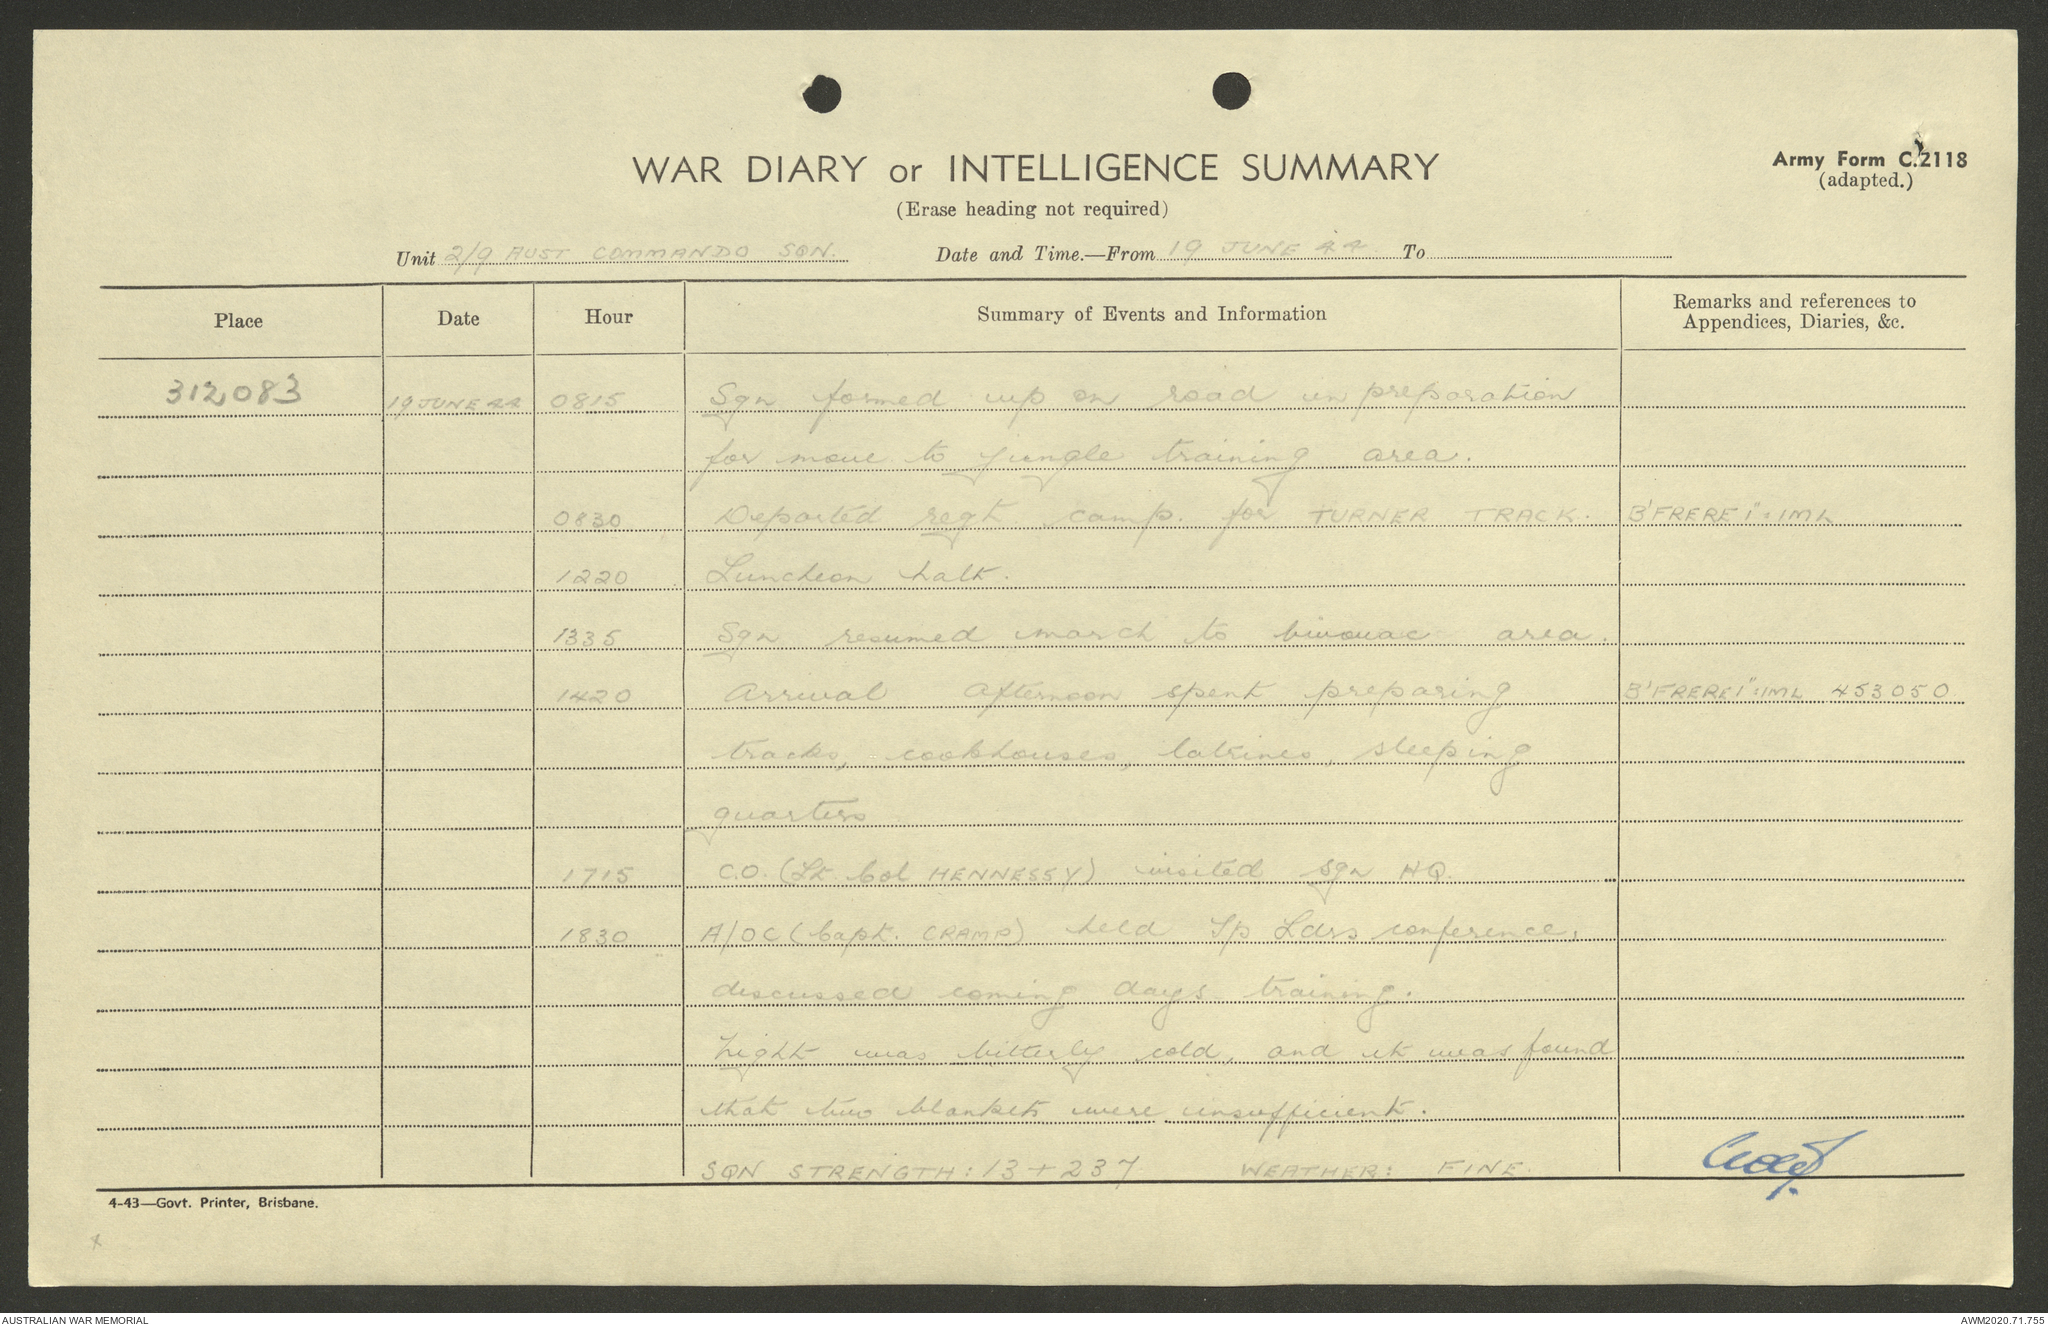 WAR DIARY or INTELLIGENCE SUMMARY
Army Form C.2118
(adapted.)
(Erase heading not required)
Unit 2/9 AUST COMMANDO SQN. Date and Time.—From 19 JUNE 44 To
Place Date Hour Summary of Events and Information Remarks and references to Appendices, Diaries, &c.
312083 19 JUNE 44 0815 Sqn formed up on road in preparation
for move to jungle training area.
0830 Departed regt camp. for TURNER TRACK. B'FRERE 1":1ML
1220 Luncheon halt.
1335 Sqn resumed march to bivouac area.
1420 Arrival Afternoon spent preparing B'FRERE 1":1ML 453050
tracks, cookhouses, latrines, sleeping
quarters
1715 C.O. (Lt Col HENNESSY) visited Sqn HQ.
1830 A/OC (Capt. CRAMP) held Tp Ldrs conference,
discussed coming days training.
Night was bitterly cold, and it was found
that two blankets were insufficient.
SQN STRENGTH: 13 + 237 WEATHER: FINE.
4-43—Govt. Printer, Brisbane.
AUSTRALIAN WAR MEMORIAL
AWM2020.71.755